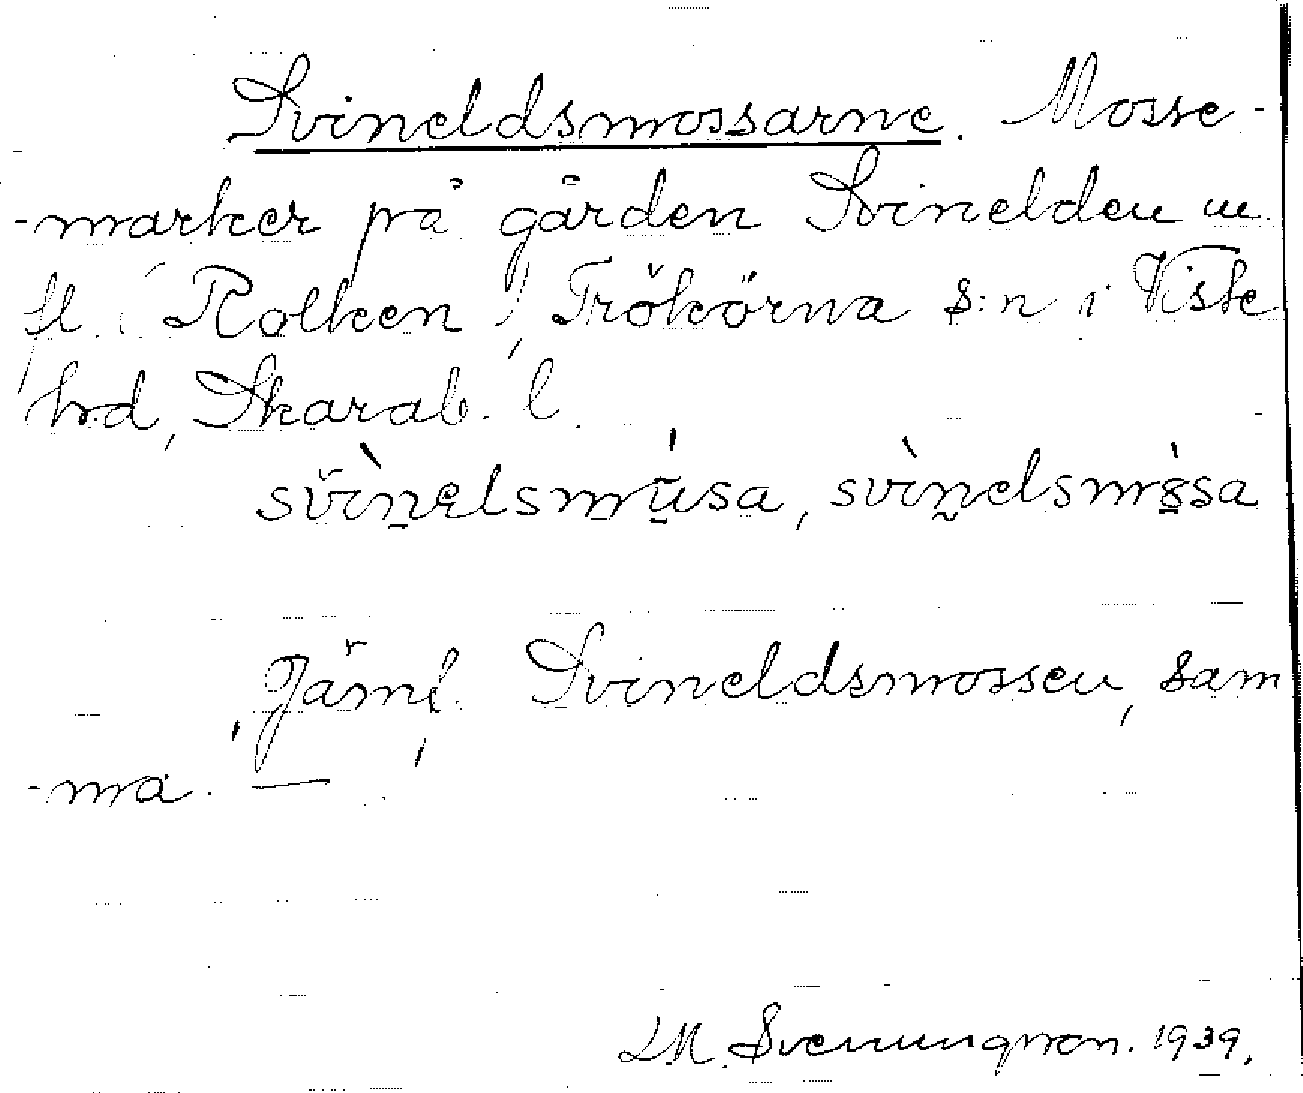 Svineldsmossarne. Mosse-
-marker på gården Svinelden m.
fl. i Rolken, Trökörna s:n i Viste
hd, Skarab. l.
svinelsmusa, svinelsmsa
Jämf. Svineldsmossen, sam
-ma. —
LM. Svenungsson. 1939.